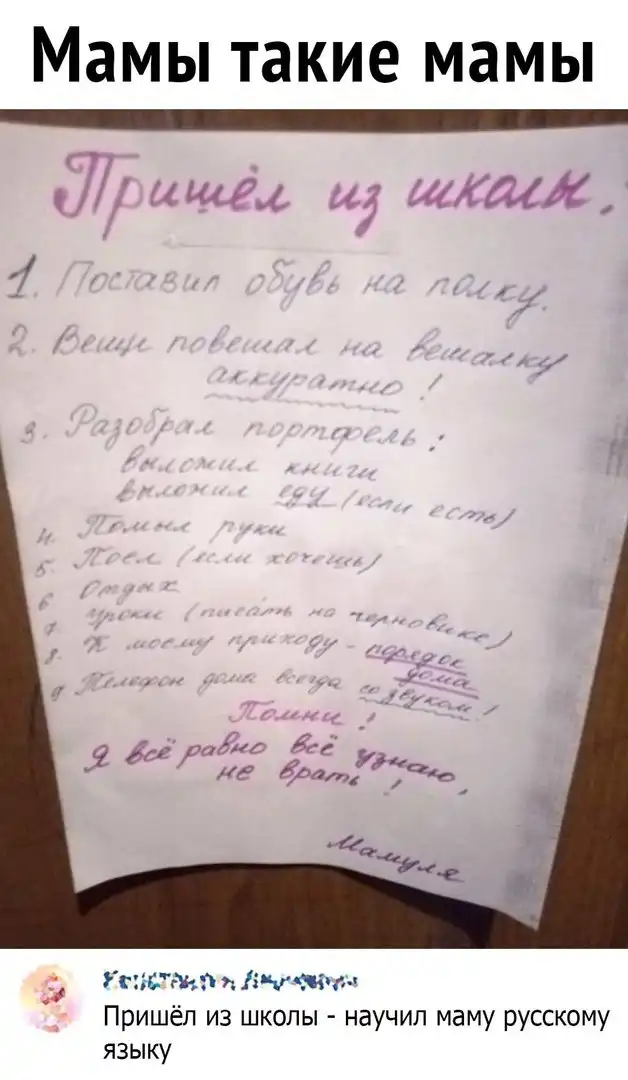 Мамы такие мамы
Пришёл из школы.
1. Поставил обувь на полку.
2. Вещи повешал на вешалку
аккуратно!
3. Разобрал портфель:
выложил книги
выложил еду (если есть)
4. Помыл руки
5. Поел (если хочешь)
6 Отдых
7. уроки (писать на черновике)
8. К моему приходу - порядок
дома
9 Телефон дома всегда со звуком!
Помни!
Я всё равно всё узнаю,
не врать!
Мамуля
Пришёл из школы - научил маму русскому
языку